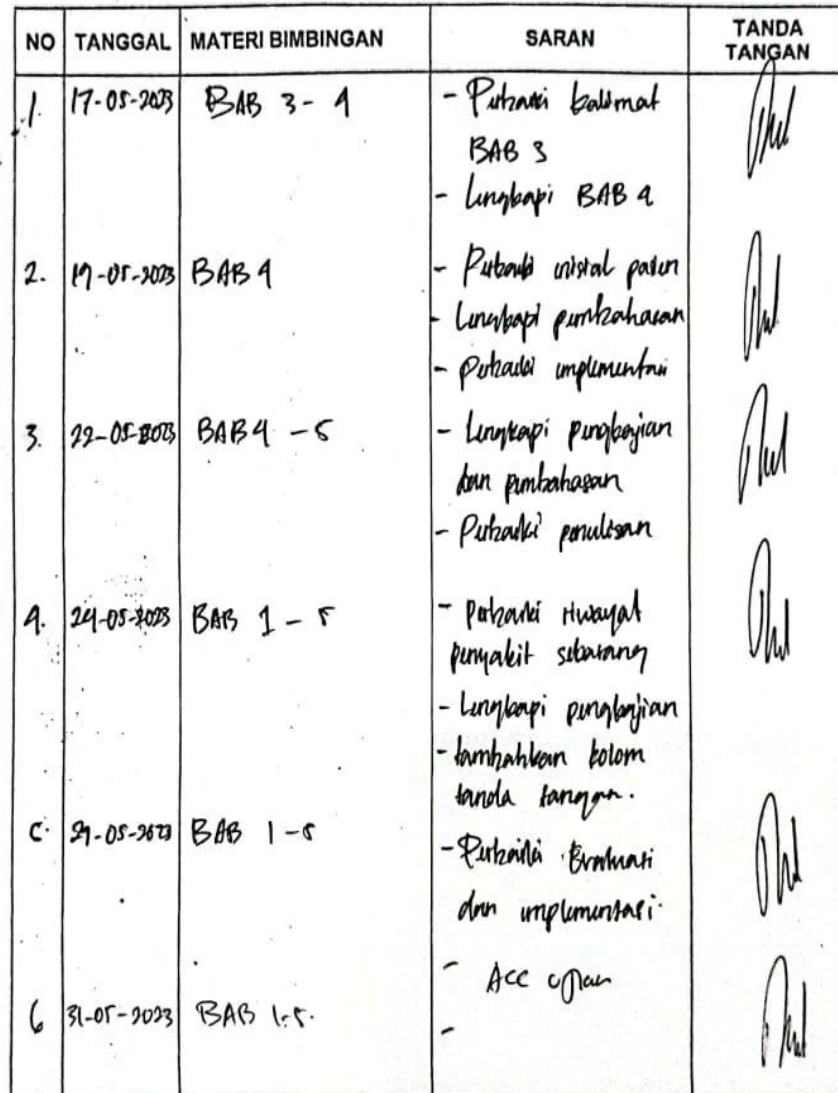 NO TANGGAL MATERI BIMBINGAN SARAN TANDA TANGAN
1. 17-05-2023 BAB 3 - 4 - Perbaiki kalimat
BAB 3
- Lengkapi BAB 4
2. 19-05-2023 BAB 4 - Perbaiki inisial pasien
- Lengkapi pembahasan
- Perbaiki implementasi
3. 22-05-2023 BAB 4 - 5 - Lengkapi pengkajian
dan pembahasan
- Perbaiki penulisan
4. 24-05-2023 BAB 1 - 5 - perbaiki riwayat
penyakit sekarang
- Lengkapi pengkajian
- tambahkan kolom
tanda tangan.
5. 29-05-2023 BAB 1 - 5 - Perbaiki Evaluasi
dan implementasi.
6 31-05-2023 BAB 1-5. - ACC ujian
-